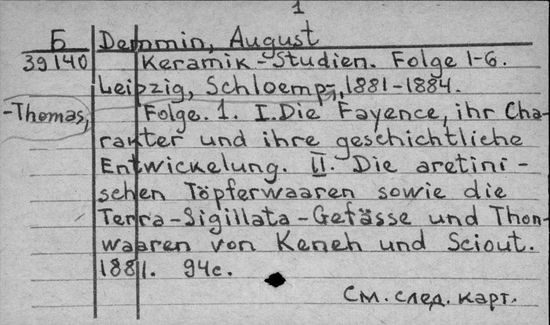 1
Б Demmin, August
39140 Keramik-Studien. Folge 1-6.
Leipzig, Schloemp, 1881-1884.
-Thomas, Folge. 1. I. Die Fayence, ihr Cha-
rakter und ihre geschichtliche
Entwickelung. II. Die aretini-
schen Töpferwaaren sowie die
Terra-Sigillata-Gefässe und Thon-
waaren von Keneh und Sciout.
1881. 94c.
См. след. карт.